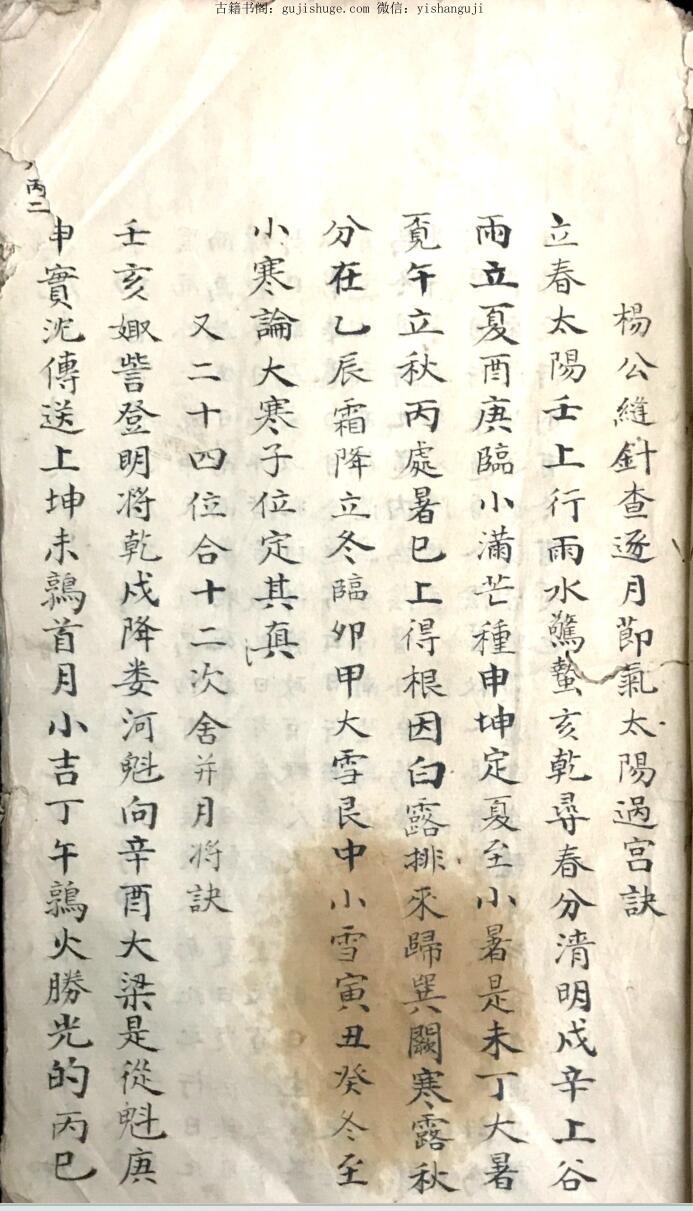 古籍书阁：gujishuge.com 微信：yishanguji
楊公縫針查逐月節氣太陽過宮訣
立春太陽壬上行雨水驚蟄亥乾尋春分清明戌辛上谷
雨立夏酉庚臨小滿芒種申坤定夏至小暑是未丁大暑
覓午立秋丙處暑巳上得根因白露排來歸巽闕寒露秋
分在乙辰霜降立冬臨卯甲大雪艮中小雪寅丑癸冬至
小寒論大寒子位定其真
又二十四位合十二次舍并月將訣
壬亥娵訾登明將乾戌降娄河魁向辛酉大梁是從魁庚
申實沈傳送上坤未鶉首月小吉丁午鶉火勝光的丙巳
丙二